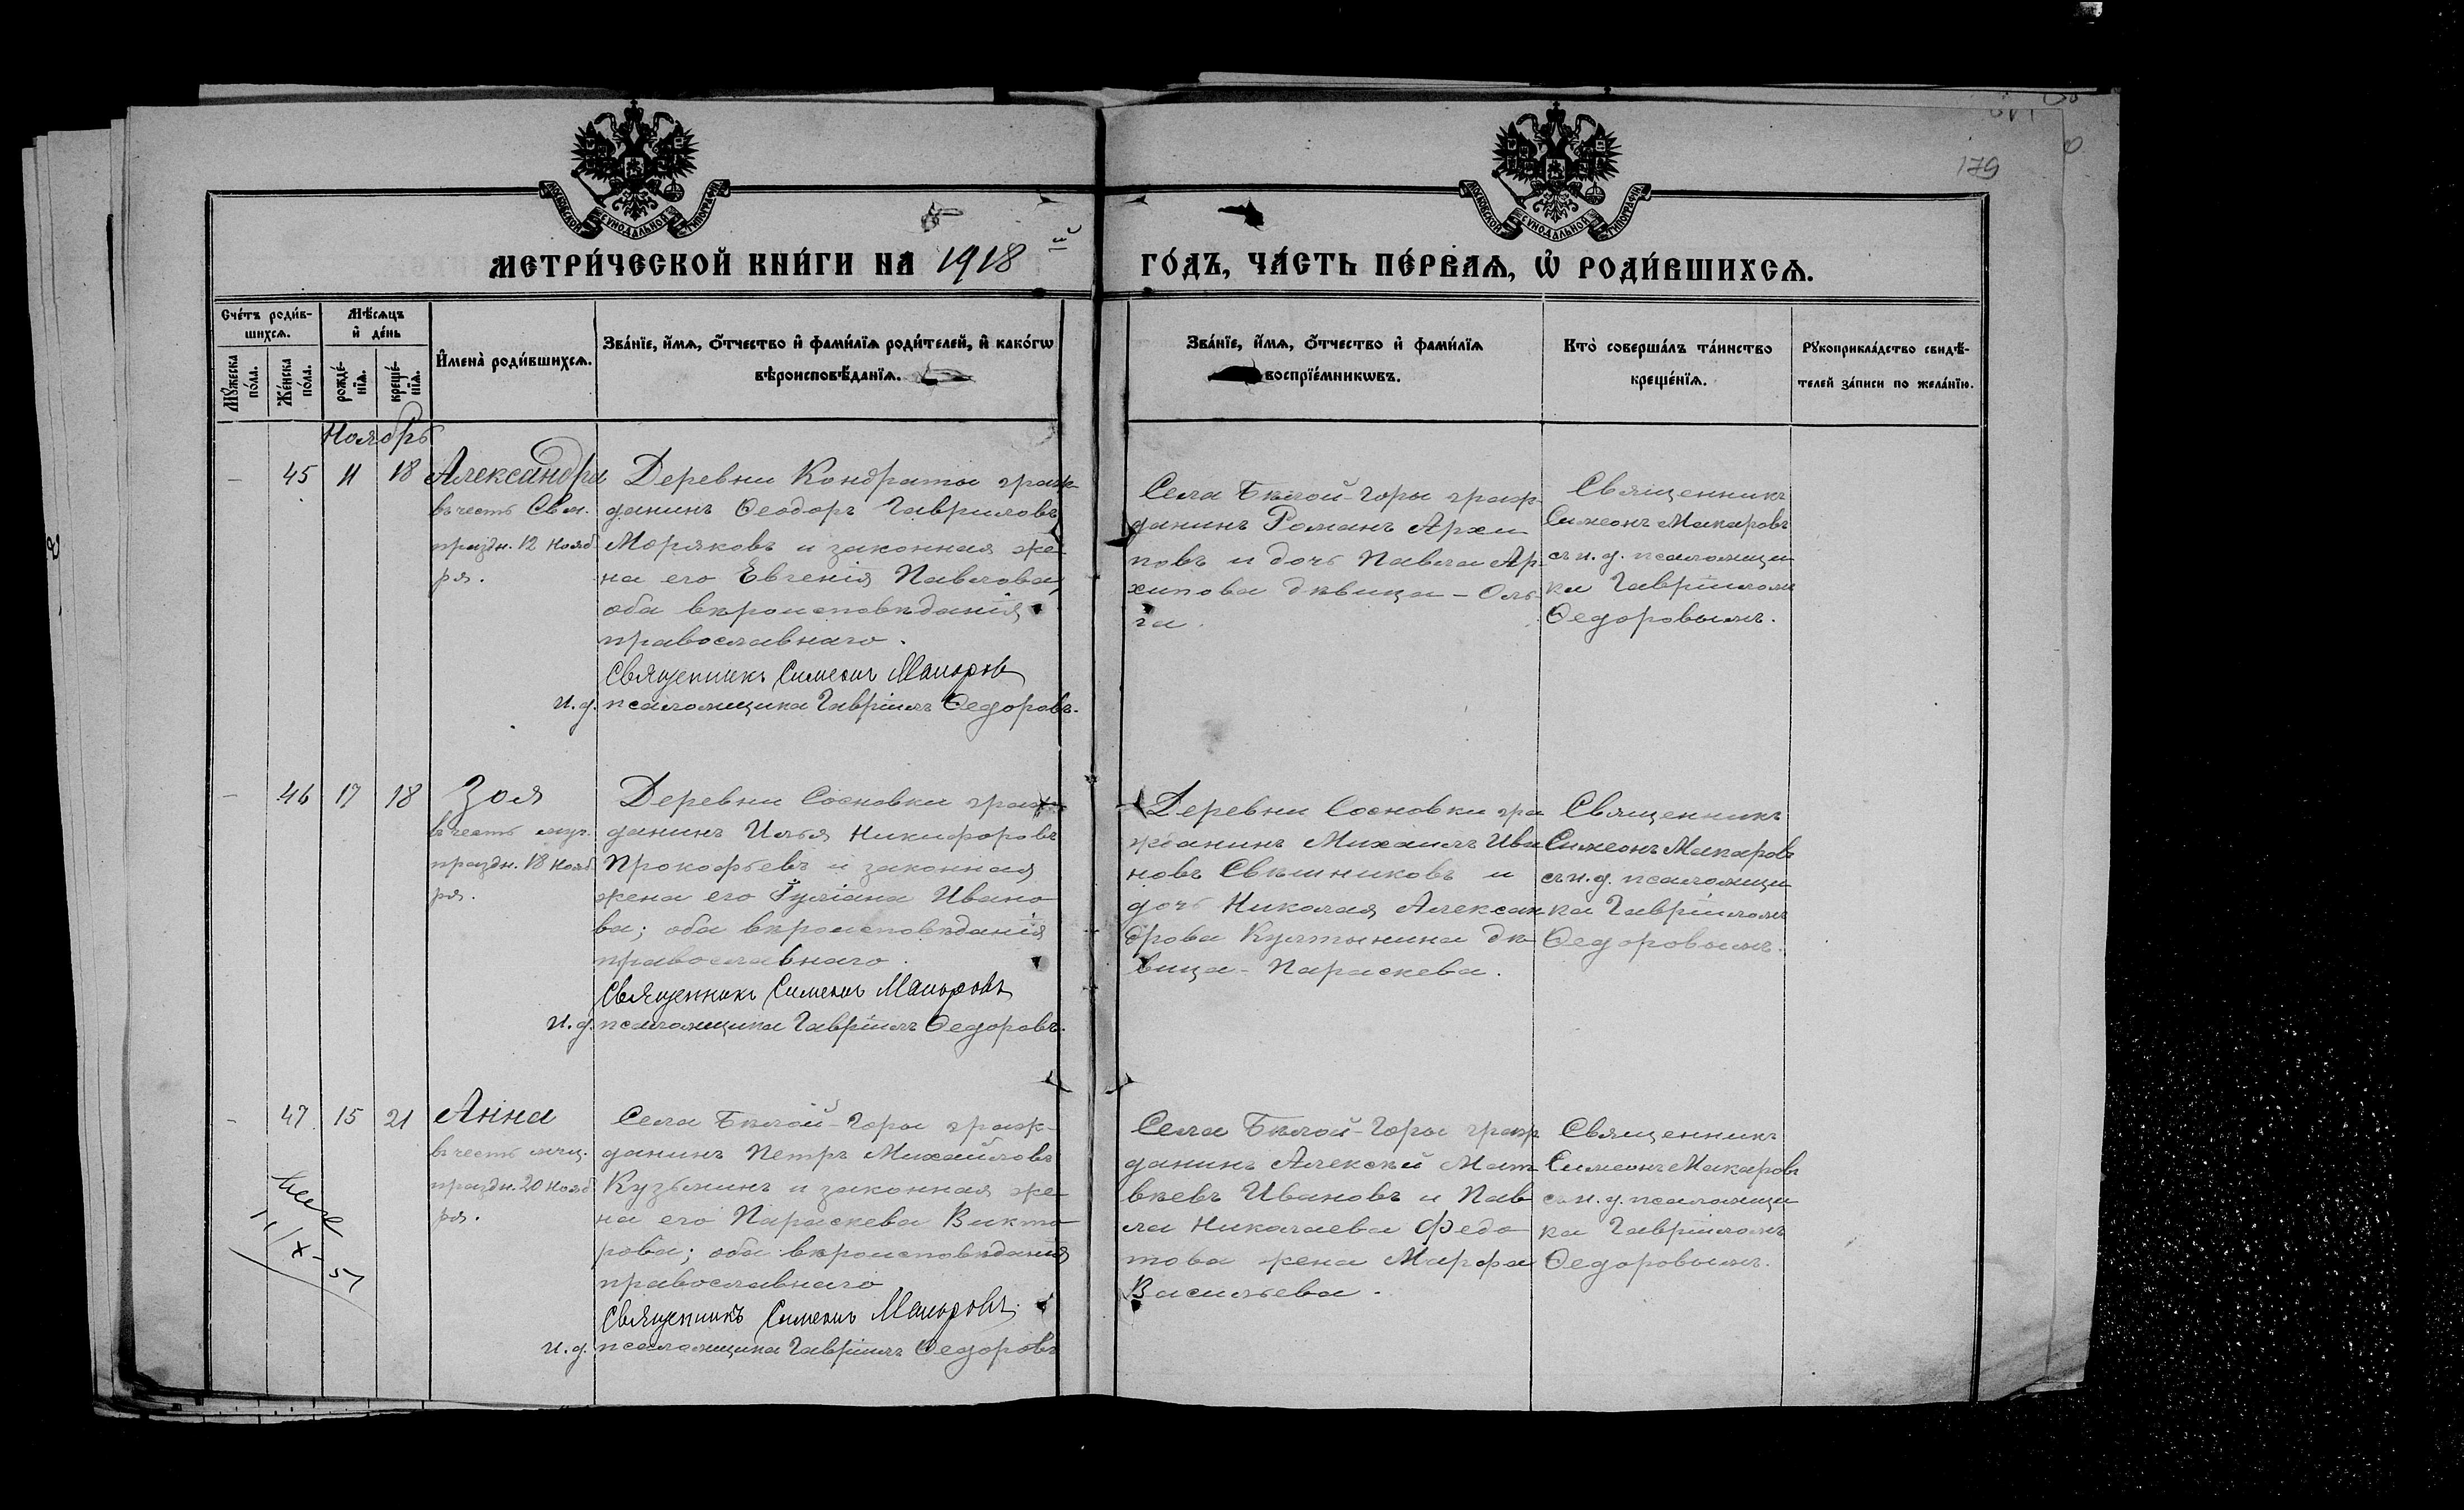 МОСКОВСКОЙ СѴНОДАЛЬНОЙ ТИПОГРАФІИ
МОСКОВСКОЙ СѴНОДАЛЬНОЙ ТИПОГРАФІИ
179
МЕТРИ́ЧЕСКОЙ КНИ́ГИ НА 1918 ГО́ДЪ, ЧА́СТЬ ПЕ́РВАѦ, Ѡ҆ РОДИ́ВШИХСѦ.
Сче́тъ роди́в-
шихсѧ.
Мѣ́сѧцъ
и҆ де́нь
Мꙋ́жеска
по́ла.
Же́нска
по́ла.
рожде́-
нїѧ.
креще́-
нїѧ.
И҆мена̀ роди́вшихсѧ.
Зва́нїе, и҆́мѧ, ѻ҆́тчество и҆ фамі́лїѧ роди́телей, и҆ како́гѡ
вѣроисповѣ́данїѧ.
Зва́нїе, и҆́мѧ, ѻ҆́тчество и҆ фамі́лїѧ
воспрїе́мникѡвъ.
Кто̀ соверша́лъ та́инство
креще́нїѧ.
Рꙋкоприкла́дство свидѣ́-
телей за́писи по жела́нїю.
Ноябрь
— 45 11 18 Александра
въ честь Свм.
праздн. 12 Нояб
ря.
Деревни Кондраты граж-
данинъ Ѳеодоръ Гавриловъ
Моряковъ и законная же-
на его Евгенія Павлова,
оба вѣроисповѣданія
православнаго.
Священникъ Симеонъ Макаровъ
и.д. псаломщика Гавріилъ Ѳедоровъ.
Села Бѣлой-Горы граж-
данинъ Романъ Архи
повъ и дочь Павла Ар-
хипова дѣвица - Оль-
га.
Священникъ
Симеонъ Макаровъ
съ и.д. псаломщи
ка Гавріиломъ
Ѳедоровымъ.
— 46 17 18 Зоя
въ честь муч.
праздн. 18 Нояб
ря.
Деревни Сосновки граж-
данинъ Илья Никифоровъ
Прокофьевъ и законная
жена его Іуліана Ивано-
ва; оба вѣроисповѣданія
православнаго.
Священникъ Симеонъ Макаровъ
и.д. псаломщика Гавріилъ Ѳедоровъ.
Деревни Сосновки гра
жданинъ Михаилъ Ива
новъ Свѣшниковъ и
дочь Николая Алексан
дрова Култынина дѣ-
вица - Параскева.
Священникъ
Симеонъ Макаровъ
съ и.д. псаломщи
ка Гавріиломъ
Ѳедоровымъ.
- 47 15 21 Анна
въ честь мчц.
праздн. 20 Нояб
ря.
Села Бѣлой-Горы граж-
данинъ Петръ Михайловъ
Кузьминъ и законная же-
на его Параскева Викто-
рова; оба вѣроисповѣданія
православнаго
Священникъ Симеонъ Макаровъ
и.д. псаломщика Гавріилъ Ѳедоровъ
Села Бѣлой-Горы граж
данинъ Алексѣй Мат-
вѣевъ Ивановъ и Пав
ла Николаева Федо-
това жена Марфа
Васильева.
Священникъ
Симеонъ Макаровъ
съ и.д. псаломщи
ка Гавріиломъ
Ѳедоровымъ.